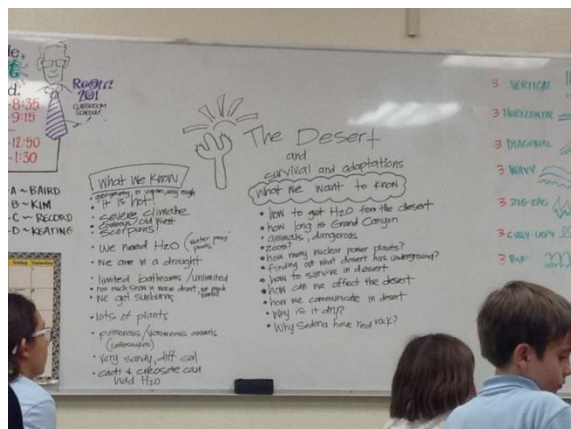 8:35
9:15
12:50
1:30
Room
201
CLASSROOM
SCHEDULE
A ~ BAIRD
B ~ KIM
C ~ RECORD
D ~ KEATING
The Desert
and
survival and adaptations
What we know
• it is hot
• severe climate
cowboys/old west
• scorpions
• We need H2O
• we are in a drought
• limited bathrooms/unlimited
• we get sunburns
• lots of plants
• poisonous/venomous animals
(rattlesnakes)
• very sandy, diff soil
• cacti & creosote can
hold H2O
What we want to know
• how to get H2O from the desert
• how long is Grand Canyon
• animals, dangerous
zoos?
• how many nuclear power plants?
• finding out what desert has underground?
• how to survive in desert
• how can we affect the desert
• how we communicate in desert
• Why is it dry?
• Why Sedona have red rock?
3 VERTICAL
3 HORIZONTAL
3 DIAGONAL
3 WAVY
3 ZIG-ZAG
3 CURLY-